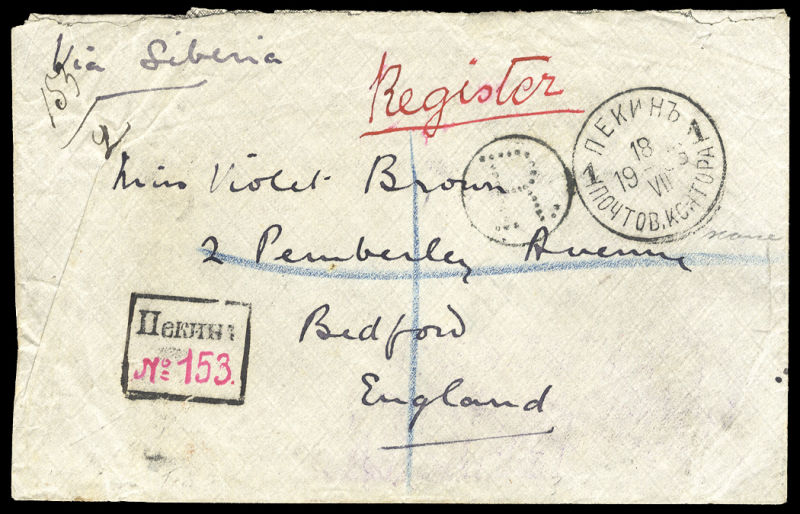 Via Siberia
153
Register
ПЕКИНЪ
18
19 VII
ПОЧТОВ.КОНТОРА
1
R
Miss Violet Brown
2 Pemberley Avenue
Bedford
England
Пекинъ
№ 153.